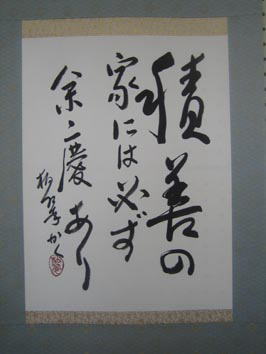 積善の
家には必ず
余慶あり
かく